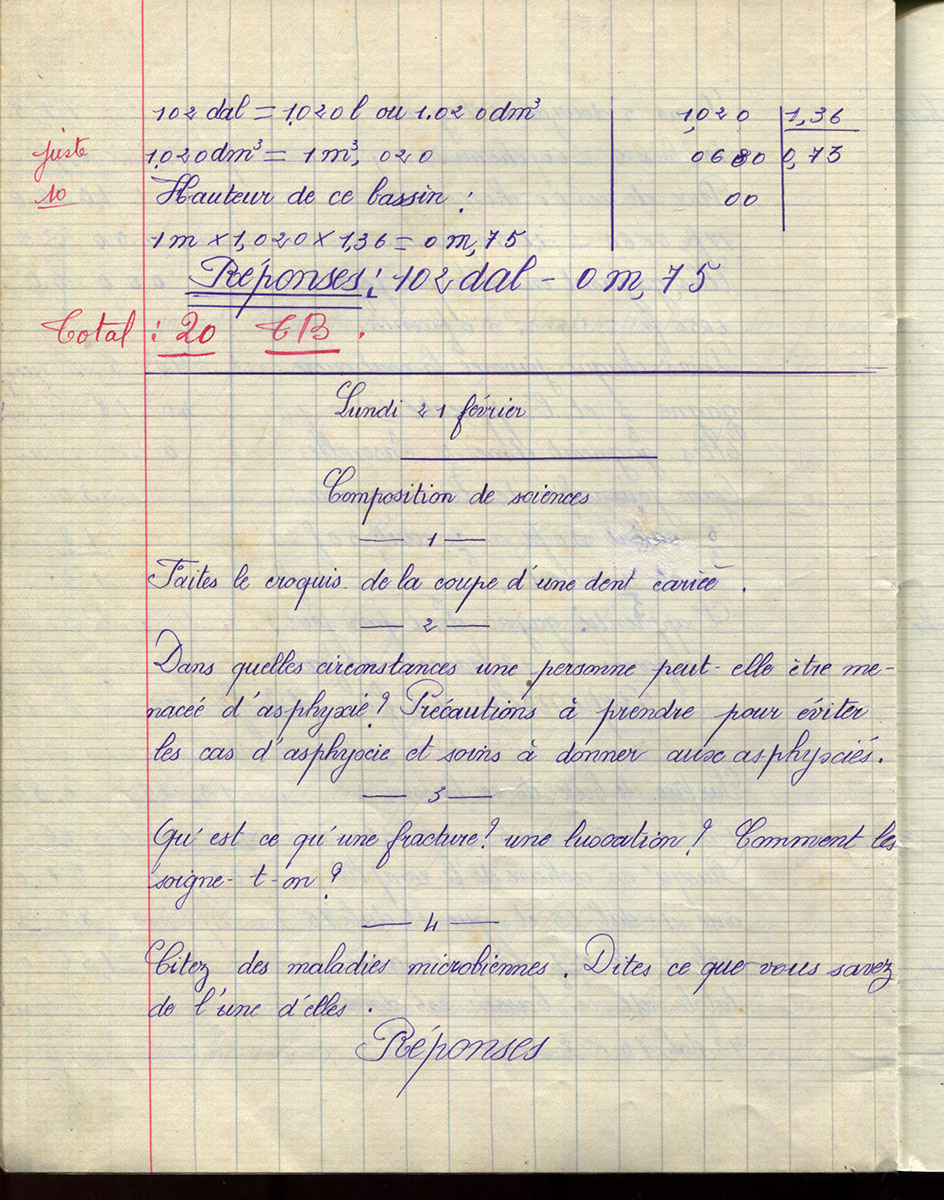 102 dal = 1.020 l ou 1.020 dm³ 1,020 1,36
juste 1.020 dm³ = 1 m³, 020 0680 0,75
10 Hauteur de ce bassin : 00
1 m × 1,020 × 1,36 = 0 m, 75
Réponses : 102 dal - 0 m, 75
Total : 20 TB.
Lundi 21 février
Composition de sciences
— 1 —
Faites le croquis de la coupe d'une dent cariée.
— 2 —
Dans quelles circonstances une personne peut-elle être me-
nacéé d'asphyxié ? Précautions à prendre pour éviter
les cas d'asphyxie et soins à donner aux asphyxiés.
— 3 —
Qu'est ce qu'une fracture ? une luxation ? Comment les
soigne-t-on ?
— 4 —
Citez des maladies microbiennes. Dites ce que vous savez
de l'une d'elles.
Réponses